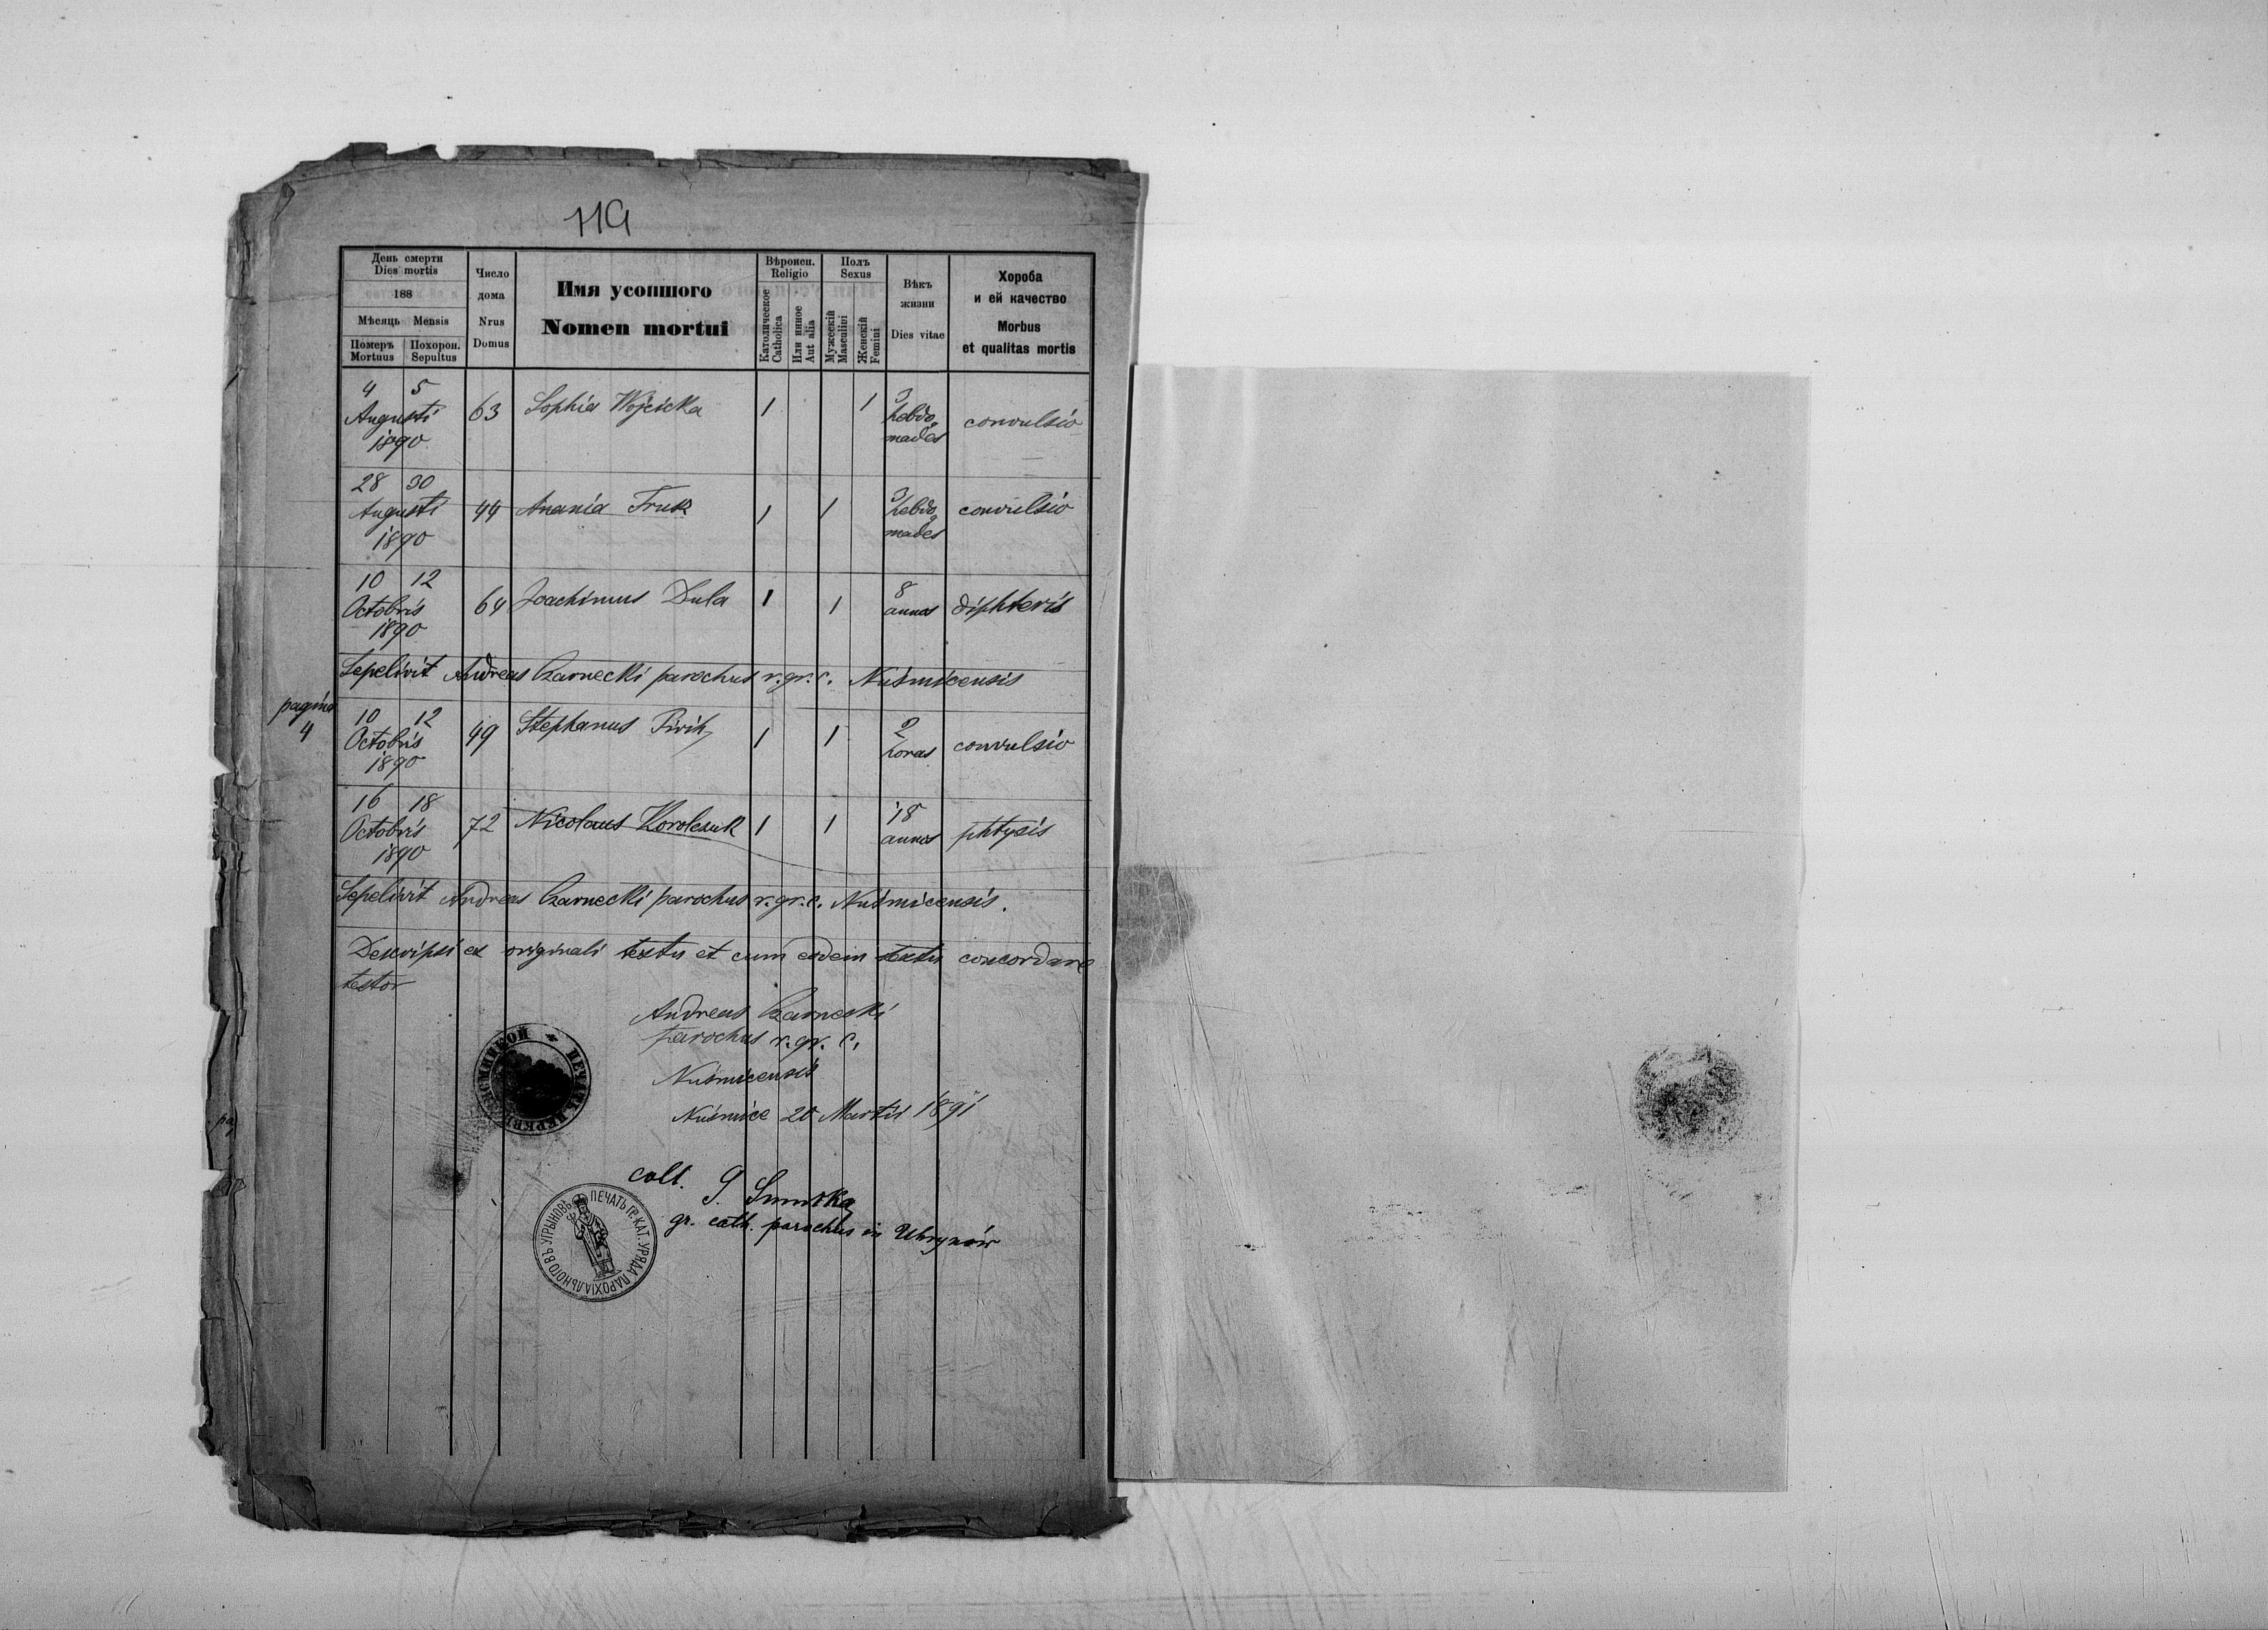 119
День смерти
Dies mortis
188
Мѣсяць Mensis
Померъ Похорон.
Mortuus Sepultus
Число
дома
Nrus
Domus
Имя усопшого
Nomen mortui
Вѣроисп.
Religio
Католическое
Catholica
Или инное
Aut alia
Полъ
Sexus
Мужескій
Masculini
Женскій
Femini
Вѣкъ
жизни
Dies vitae
Хороба
и ей качество
Morbus
et qualitas mortis
4 5
Augusti 63 Sophia Wojcicka 1 1 3 hebdo
1890 mades convulsio
28 30
Augusti 44 Anania Truk 1 1 3 hebdo convulsio
1890 mades
10 12
Octobris 64 Joachimus Dula 1 1 8 annos diphteris
1890
Sepelivit Andreas Czarnecki parochus r. gr. c. Nuśmicensis
pagina
4
10 12
Octobris 49 Stephanus Pivih 1 1 2 horas convulsio
1890
16 18
Octobris 72 Nicolaus Korolczuk 1 1 18 annos phtysis
1890
Sepelivit Andreas Czarnecki parochus r. gr. c. Nuśmicensis.
Descripsi ex originali textu et cum eodem textu concordare
testor
Andreas Czarnecki
parochus r. gr. c.
Nuśmicensis
Nuśmice 20 Martii 1891
coll.
gr. cath. parochus in Uhrynów
ПЕЧАТЬ ГР. КАТ. УРЯДА ПАРОХІАЛЬНОГО ВЪ УГРЫНОВѢ